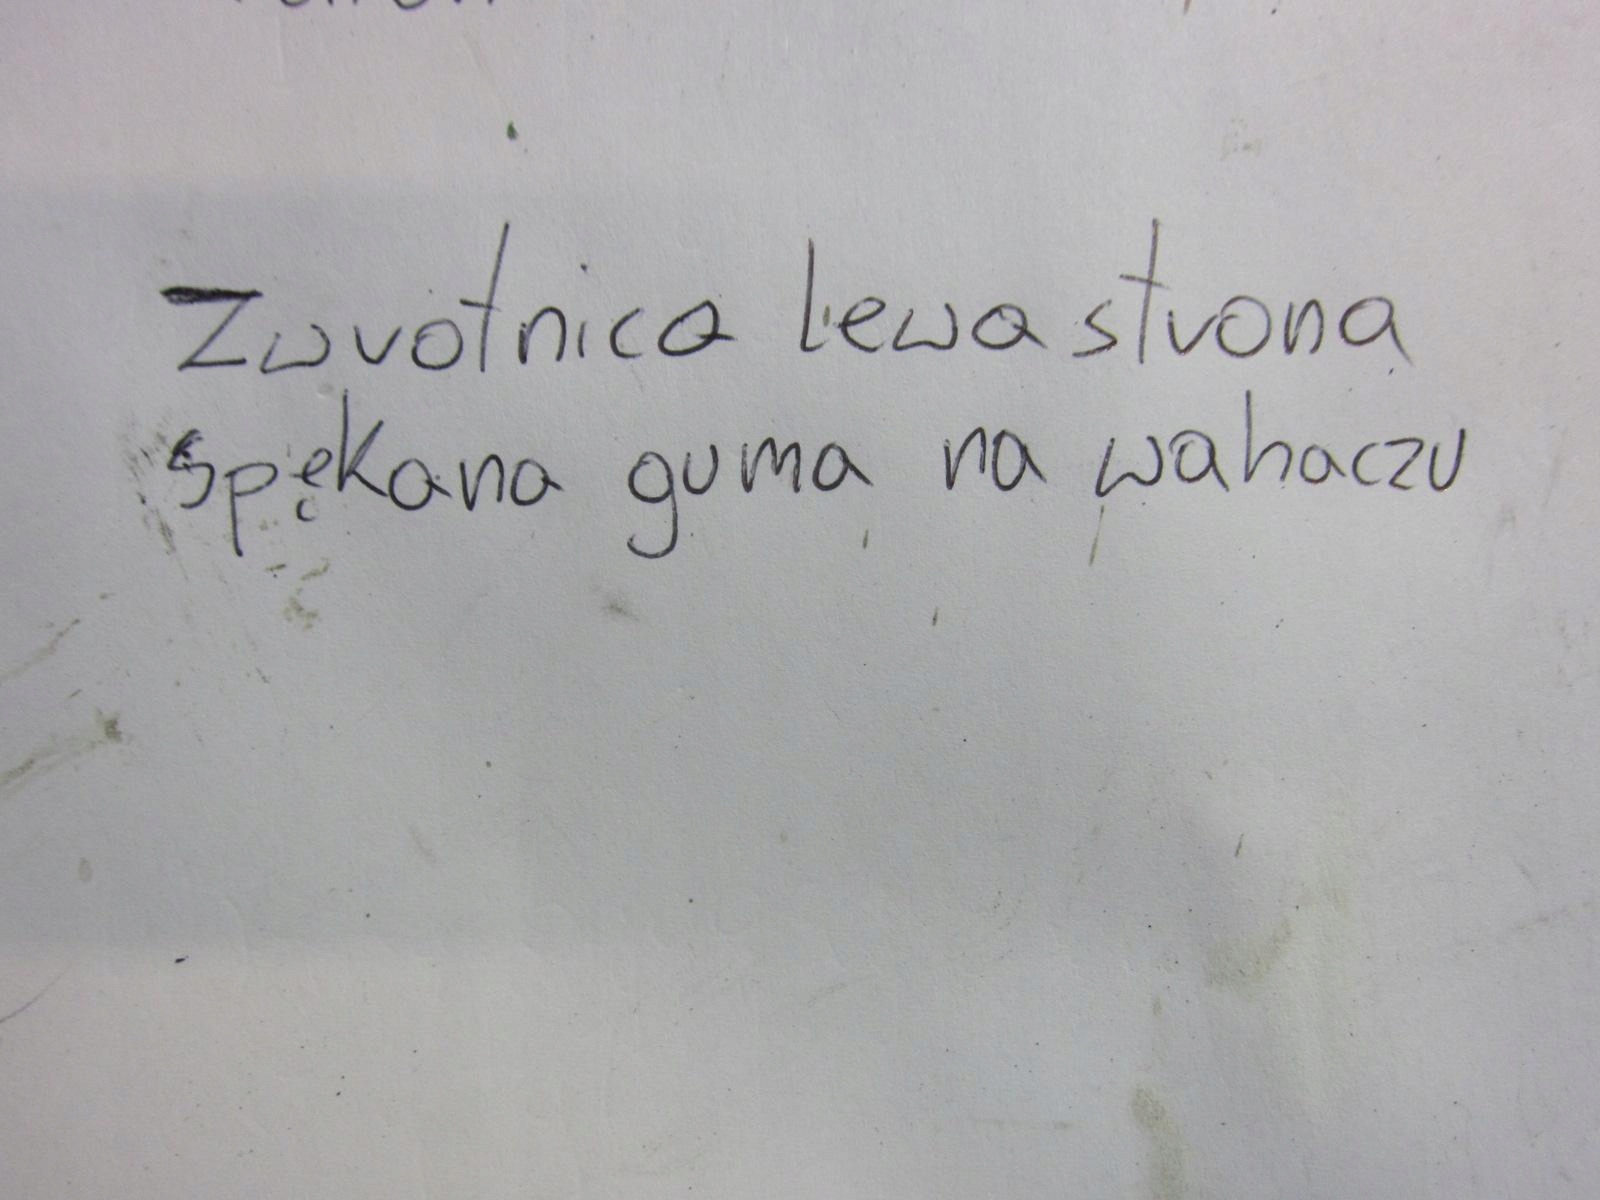 Zwrotnica lewa strona
spękana guma na wahaczu